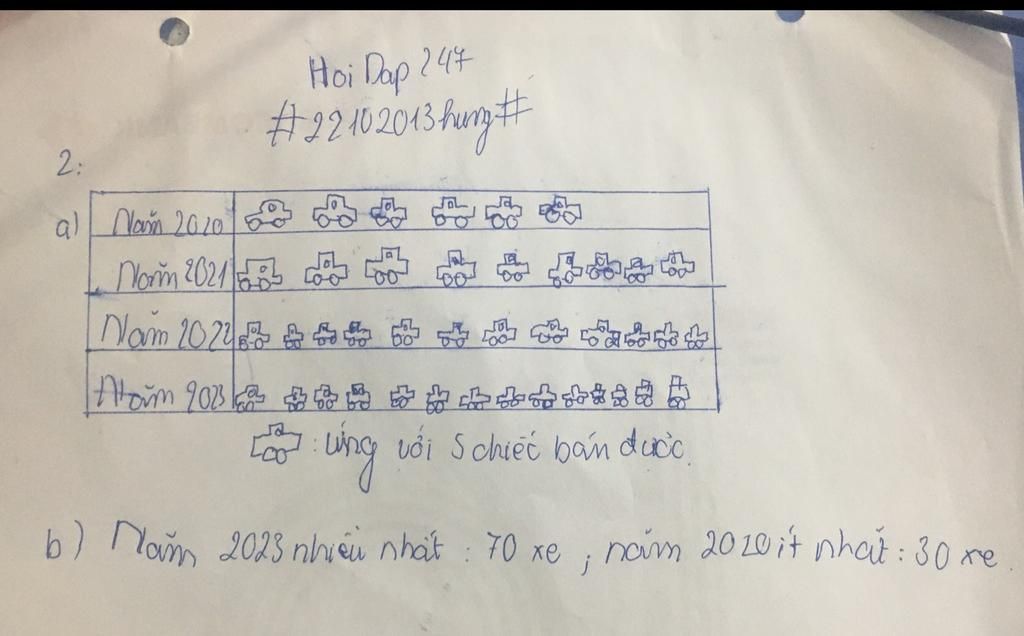 Hoi Dap 247
#22102013hung#
2:
a) Năm 2020
Năm 2021
Năm 2022
Năm 2023
: ứng với 5 chiếc bán được.
b) Năm 2023 nhiều nhất : 70 xe ; năm 2020 ít nhất : 30 xe.